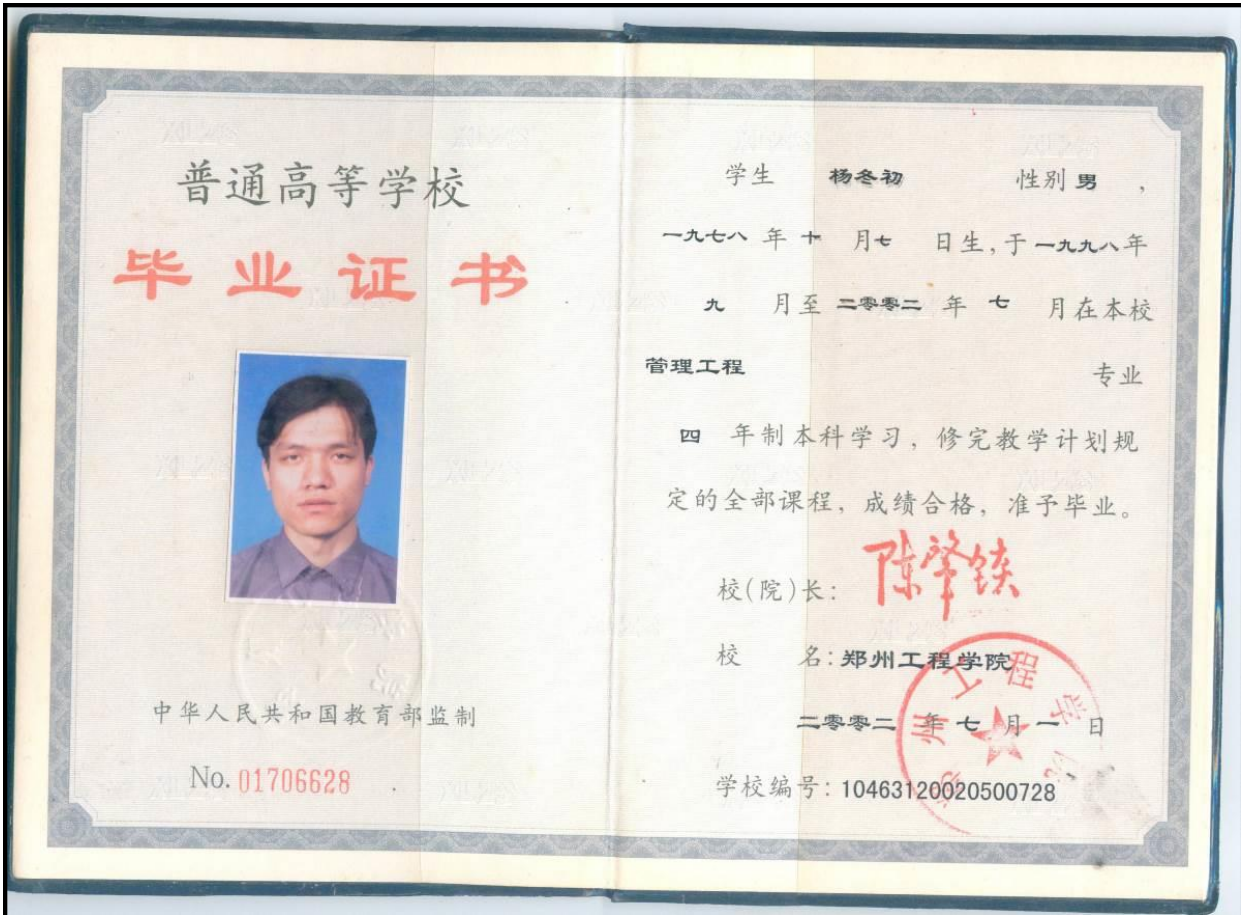 普通高等学校
毕业证书
中华人民共和国教育部监制
No. 01706628
学生 杨冬初 性别 男 ,
一九七八 年 十 月 七 日生, 于 一九九八 年
九 月至 二零零二 年 七 月在本校
管理工程 专业
四 年制本科学习, 修完教学计划规
定的全部课程, 成绩合格, 准予毕业。
校(院)长:
校 名: 郑州工程学院
二零零二 年 七 月 一 日
学校编号: 10463120020500728